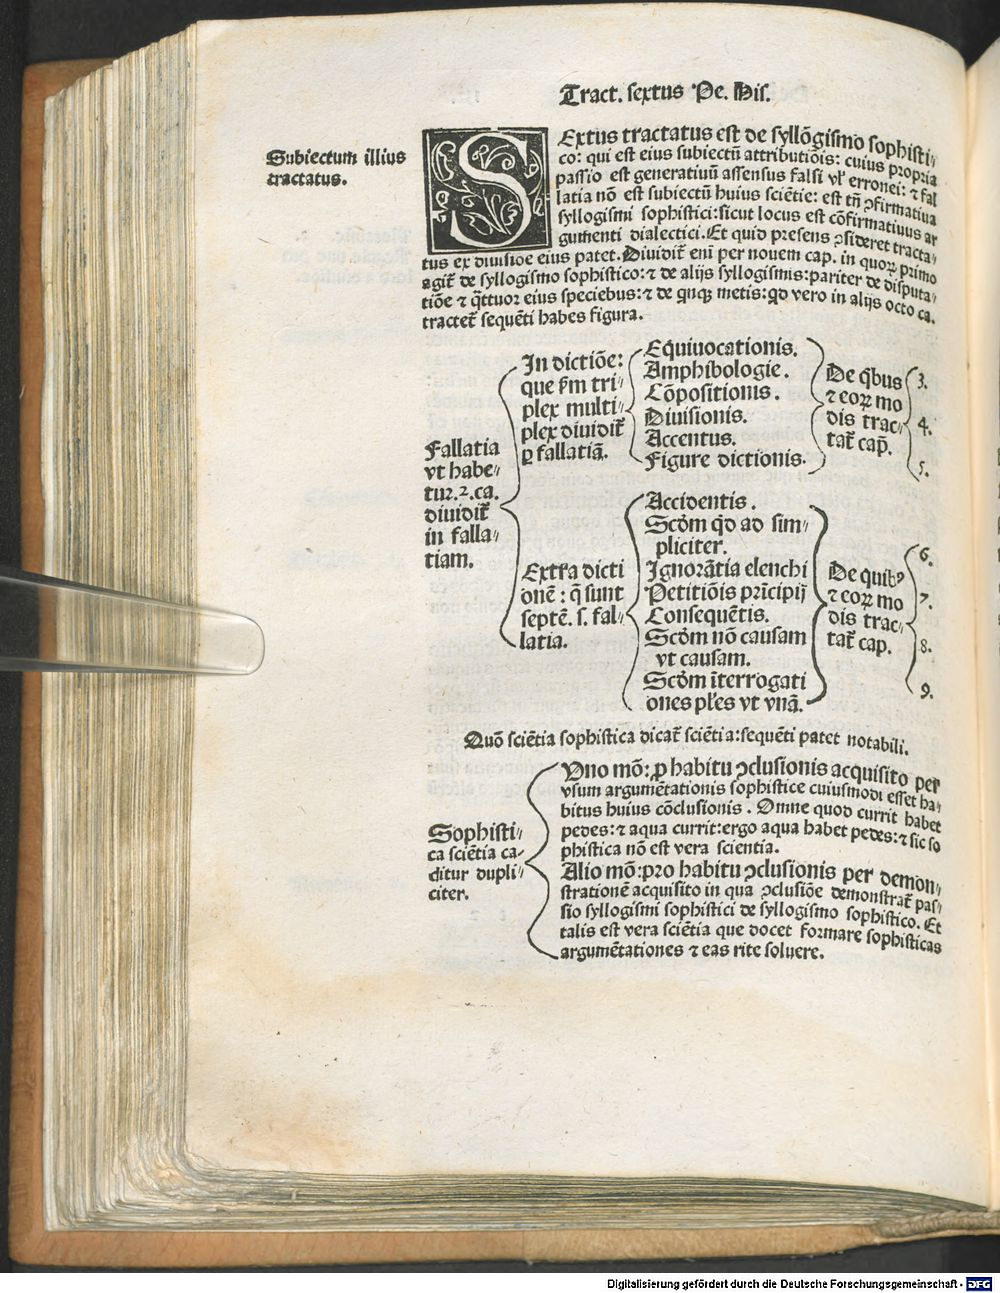 Tract. sextus Pe. His.
Subiectum illius
tractatus.
SExtus tractatus est de syllõgismo sophisti⸗
co: qui est eius subiectũ attributiõis: cuius propria
passio est generatiuũ assensus falsi vl' erronei: ⁊ fal
latia nõ est subiectũ huius sciẽtie: est tñ ꝯfirmatiua
syllogismi sophistici: sicut locus est cõfirmatiuus ar
gumenti dialectici. Et quid presens ꝯsideret tracta⸗
tus ex diuisiõe eius patet. Diuidit᷑ eni᷑ per nouem cap. in quoꝝ primo
agit᷑ de syllogismo sophistico: ⁊ de alijs syllogismis: pariter de disputa⸗
tiõe ⁊ q̃ttuor eius speciebus: ⁊ de q̃nqꝫ metis: qd̕ vero in alijs octo ca.
tractet᷑ sequẽti habes figura.
Fallatia
vt habe⸗
tur .2. ca.
diuidit᷑
in falla⸗
tiam.
In dictiõe:
que ẜm tri⸗
plex multi⸗
plex diuidit᷑
ꝑ fallatiã.
Equiuocationis.
Amphibologie.
Cõpositionis.
Diuisionis.
Accentus.
Figure dictionis.
De q̃bus
⁊ eoꝝ mo
dis trac⸗
tat᷑ cap̃.
3.
4.
5.
Extra dicti
onẽ: q̃ sunt
septẽ. s. fal⸗
latia.
Accidentis.
Scd̕m qd̕ ad sim⸗
pliciter.
Ignorãtia elenchi
Petitiõis prĩcipij
Consequẽtis.
Scd̕m nõ causam
vt causam.
Scd̕m ĩterrogati
ones pl'es vt vnã.
De quibꝰ
⁊ eoꝝ mo
dis trac⸗
tat᷑ cap.
6.
7.
8.
9.
Quõ sciẽtia sophistica dicat᷑ sciẽtia: sequẽti patet notabili.
Sophisti⸗
ca sciẽtia ca⸗
ditur dupli⸗
citer.
Vno mõ: ꝓ habitu ꝯclusionis acquisito per
vsum argumẽtationis sophistice cuiusmodi esset ha⸗
bitus huius cõclusionis. Omne quod currit habet
pedes: ⁊ aqua currit: ergo aqua habet pedes: ⁊ sic so
phistica nõ est vera scientia.
Alio mõ: pro habitu ꝯclusionis per demon⸗
strationẽ acquisito in qua ꝯclusiõe demonstrat᷑ pas⸗
sio syllogismi sophistici de syllogismo sophistico. Et
talis est vera sciẽtia que docet formare sophisticas
argumẽtationes ⁊ eas rite soluere.
Digitalisierung gefördert durch die Deutsche Forschungsgemeinschaft - DFG